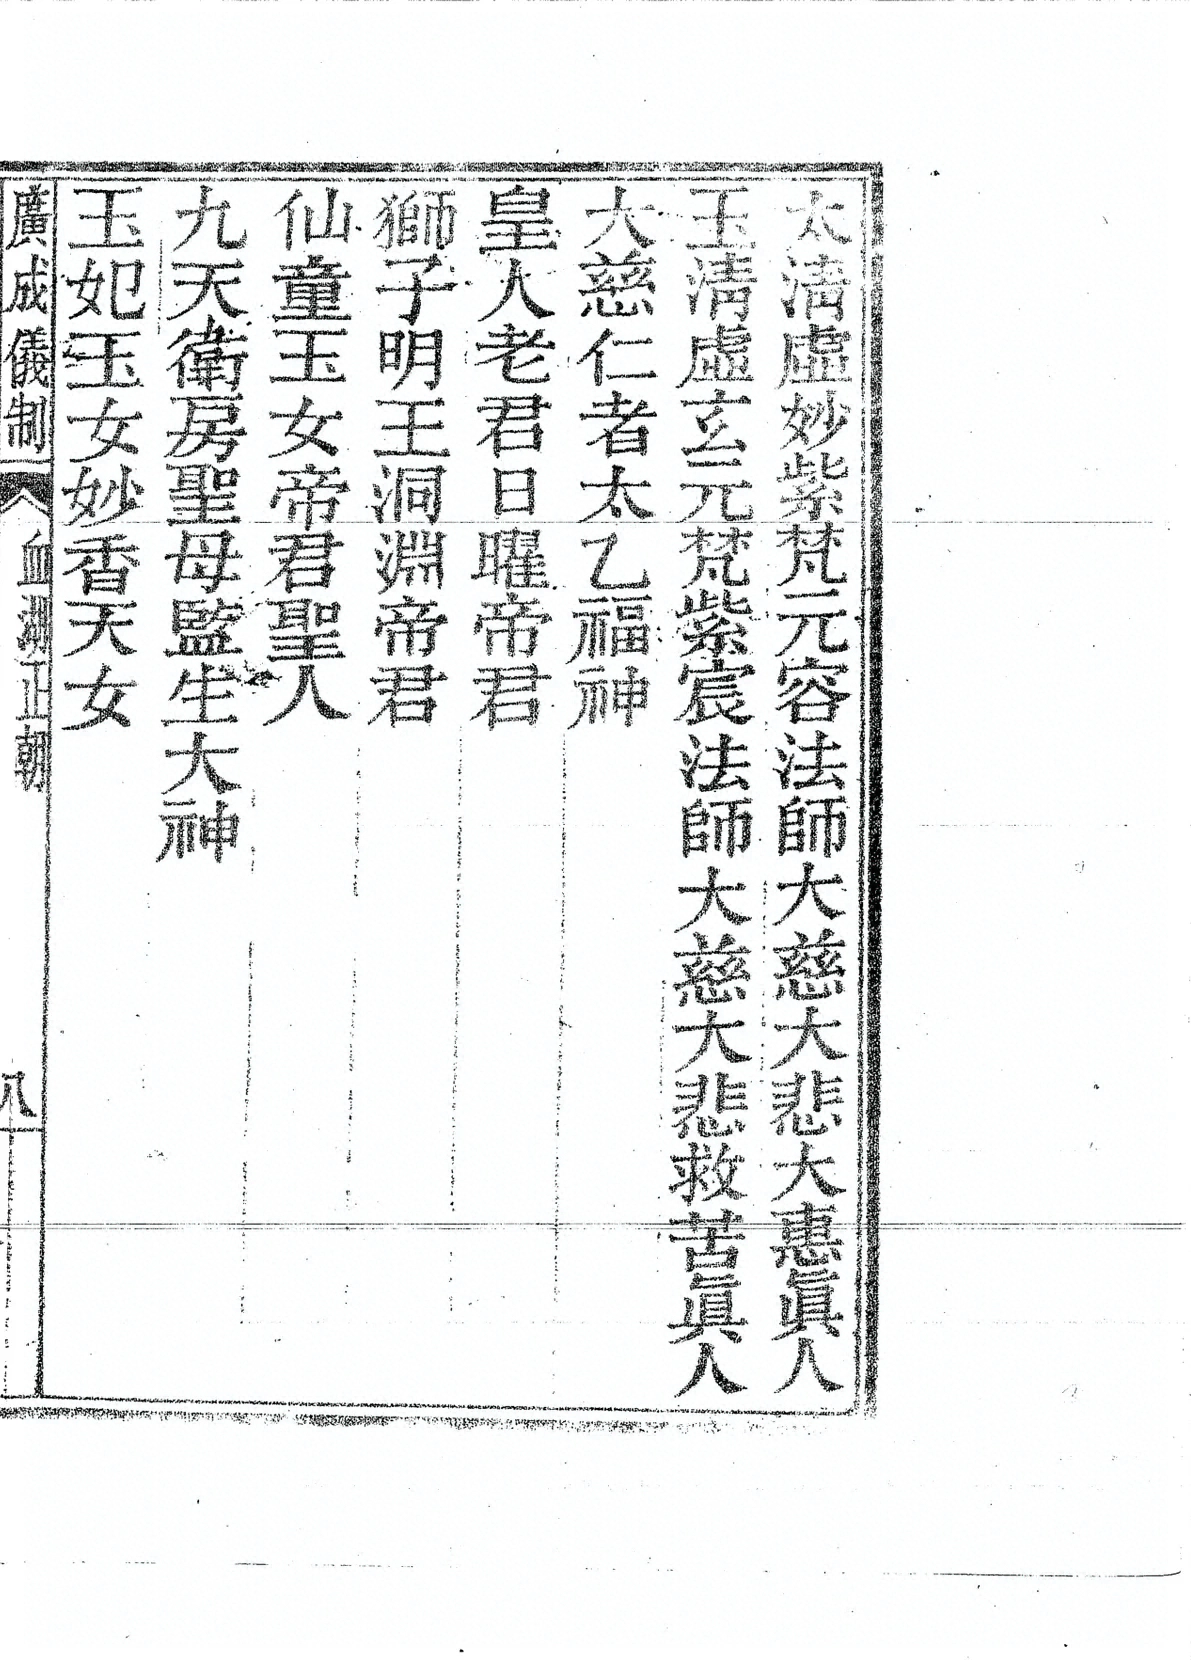 太清虛妙紫梵元容法師大慈大悲大惠眞人
玉清虛玄元梵紫宸法師大慈大悲救苦眞人
大慈仁者太乙福神
皇人老君日曜帝君
獅子明王洞淵帝君
仙童玉女帝君聖人
九天衛房聖母監生大神
玉妃玉女妙香天女
廣成儀制
血湖正朝
八